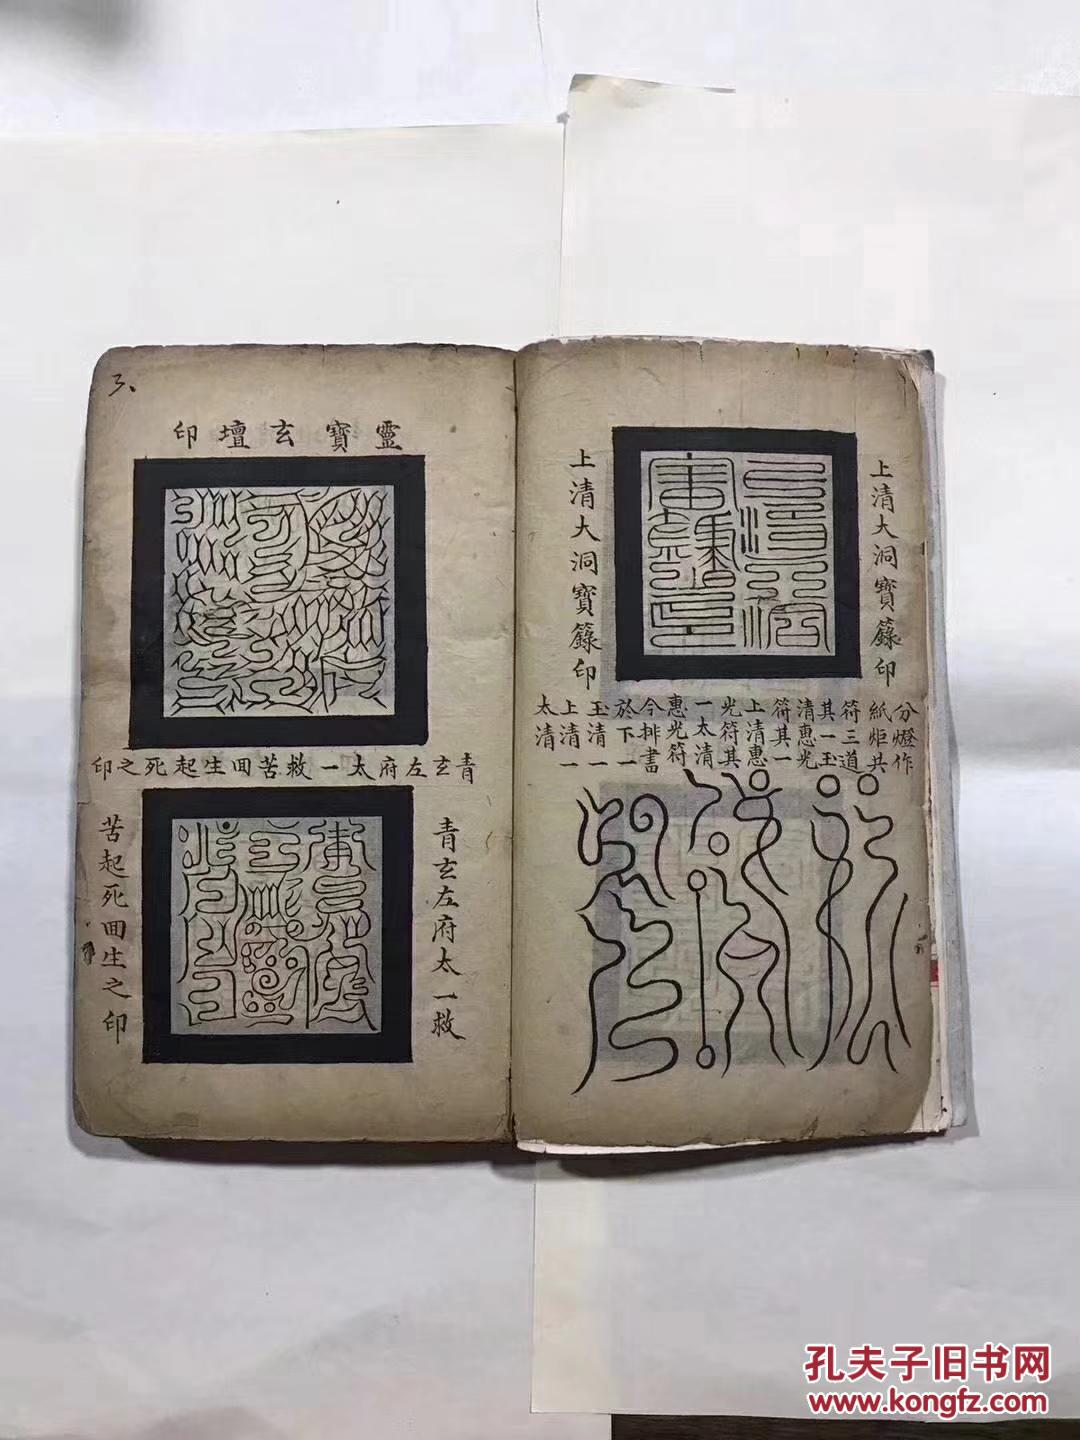 上清大洞寶籙印
上清大洞寶籙印
分燈作
紙炬共
符三道
其一玉
清惠光
符其一
上清惠
光符其
一太清
惠光符
今排書
於下一
玉清一
上清一
太清
靈寶玄壇印
青玄左府太一救苦回生起死之印
青玄左府太一救
苦起死回生之印
孔夫子旧书网
www.kongfz.com